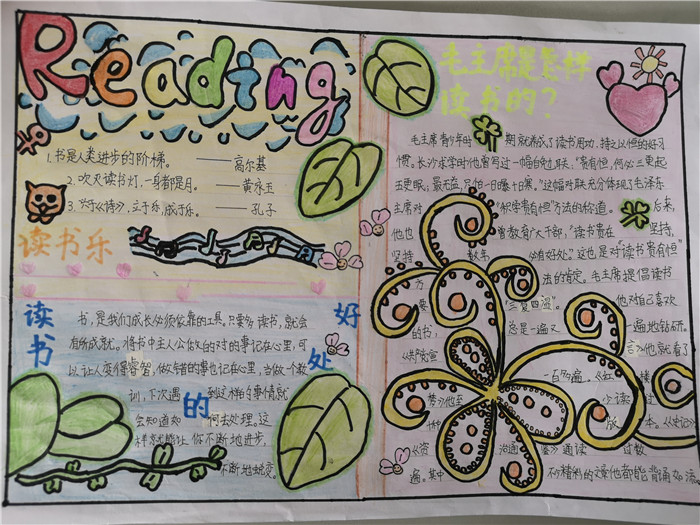 Reading
1.书是人类进步的阶梯。 ——高尔基
2.吹灭读书灯,一身都是月。 ——黄永玉
3.兴于《诗》,立于乐,成于乐。 ——孔子
读书乐
读书的好处
书,是我们成长必须依靠的工具。只要多读书,就会
有所成就。将书中主人公做的对的事记在心里,可
以让人变得睿智,做错的事也记在心里,当做个教
训,下次遇到这样的事情就
会知道如何去处理。这
样就能让你不断地进步,
不断地蜕变。
毛主席是怎样
读书的?
毛主席青少年时期就养成了读书用功,持之以恒的好习
惯。长沙求学时他曾写过一幅自勉联:“贵有恒,何必三更起
五更眠;最无益,只怕一日曝十寒。”这幅对联充分体现了毛泽东
主席对“积学贵有恒”方法的称道。后来,
他也曾教育广大干部,“读书贵在坚持,
坚持数年,必有好处”。这也是对“读书贵有恒”
方法的肯定。毛主席提倡读书
要“三复四温”。他对自己喜欢
的书,总是一遍又一遍地钻研。
《共产党宣言》他就看了
一百多遍,《红楼
梦》他至少读过
十种版本。《史记》
《资治通鉴》通读过数
遍。其中不少精彩的文章他都能背诵如流。